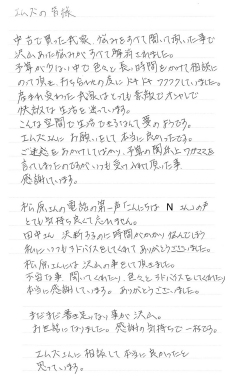 エムズの皆様
中古で買った我家、悩みをうちあけて聞いて頂いた事で
沢山あった悩みがかくうちで解消されました。
予算が少ない中で色々と長い時間をかけて相談に
のって頂き、打ち合わせの度にドキドキワクワクしていました。
生まれ変わった我家はとても素敵でオシャレで
快適な生活を送っています。
こんな空間で生活できるなんて夢の様です。
エムズさんにお願いをして本当に良かったです。
ご迷惑をおかけしてばかり、予算の関係上ワガママを
言ってしまったのですがいつも受け入れて頂いた事
感謝しています。
松原さんの電話の第一声「こんにちは N さん」の声
とても気持ち良くて忘れません。
田中さん 決断するのに時間がかかり悩んでいた
私にいつもアドバイスをしてくれてありがとうございました。
松原さんには沢山の事をして頂きました。
不安な事 聞いてくれたり、色々とアドバイスをしてくれたり
本当に感謝しています。ありがとうございました。
まだまだ書き足りない事が沢山。
お世話になりました。感謝の気持ちで一杯です。
エムズさんに相談して本当に良かったと
思っています。